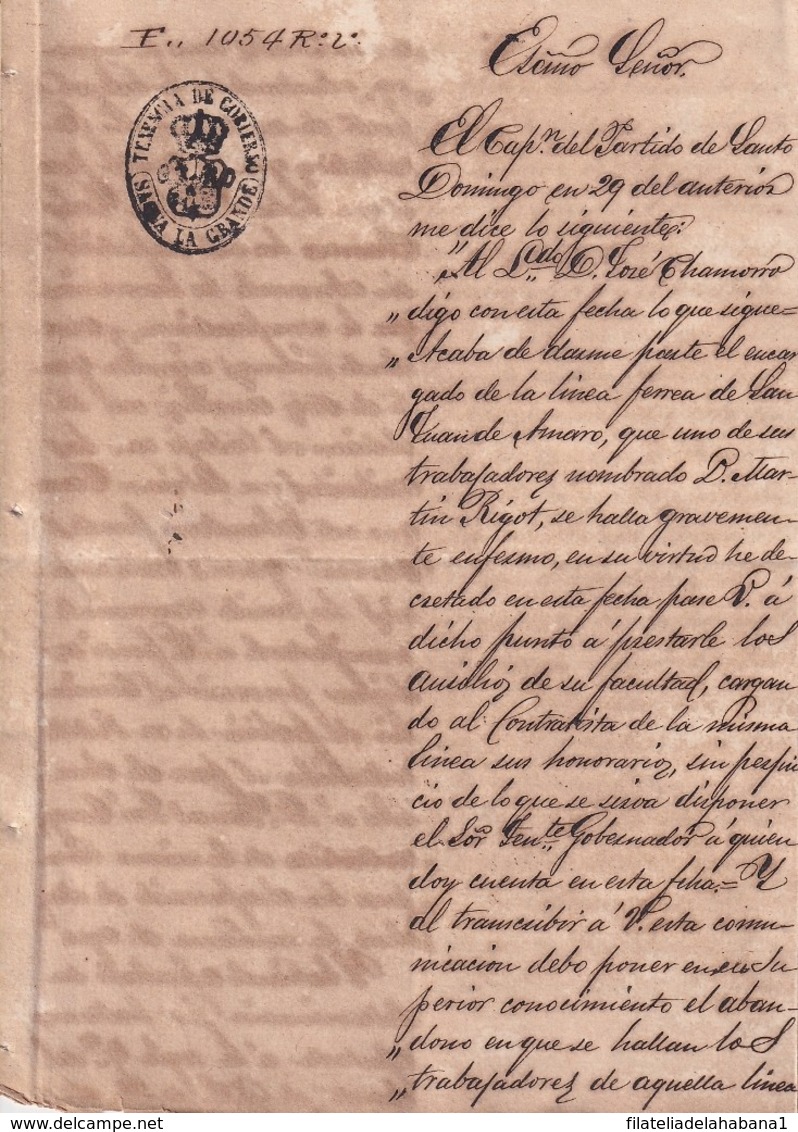 E.. 1054 Rº 2º
TENENCIA DE GOBIERNO
SAGUA LA GRANDE
Escmo Señor.
El Capn. del Partido de Santo
Domingo en 29 del anterior
me dice lo siguiente:
"Al Lcdo. D. José Chamorro
"digo con esta fecha lo que sigue=
"Acaba de darme parte el encar
gado de la linea ferrea de San
Juan de Amaro, que uno de sus
trabajadores nombrado D. Mar-
tin Rigot, se halla gravemen-
te enfermo, en su virtud he de-
cretado en esta fecha pase V. á
dicho punto á prestarle los
ausilios de su facultad, cargan
do al Contratista de la misma
linea sus honorarios, sin perjui
cio de lo que se sirva disponer
el Sor. Tente. Gobernador á quien
doy cuenta en esta fcha.= Y
al transcribir á V. esta comu-
nicacion debo poner en su Su
perior conocimiento el aban-
"dono en que se hallan los
"trabajadores de aquella linea
filateliadelahabana1